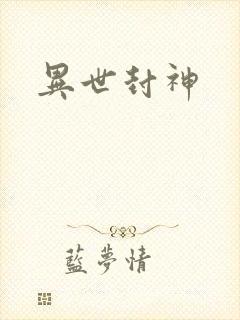 異世封神
藍夢情